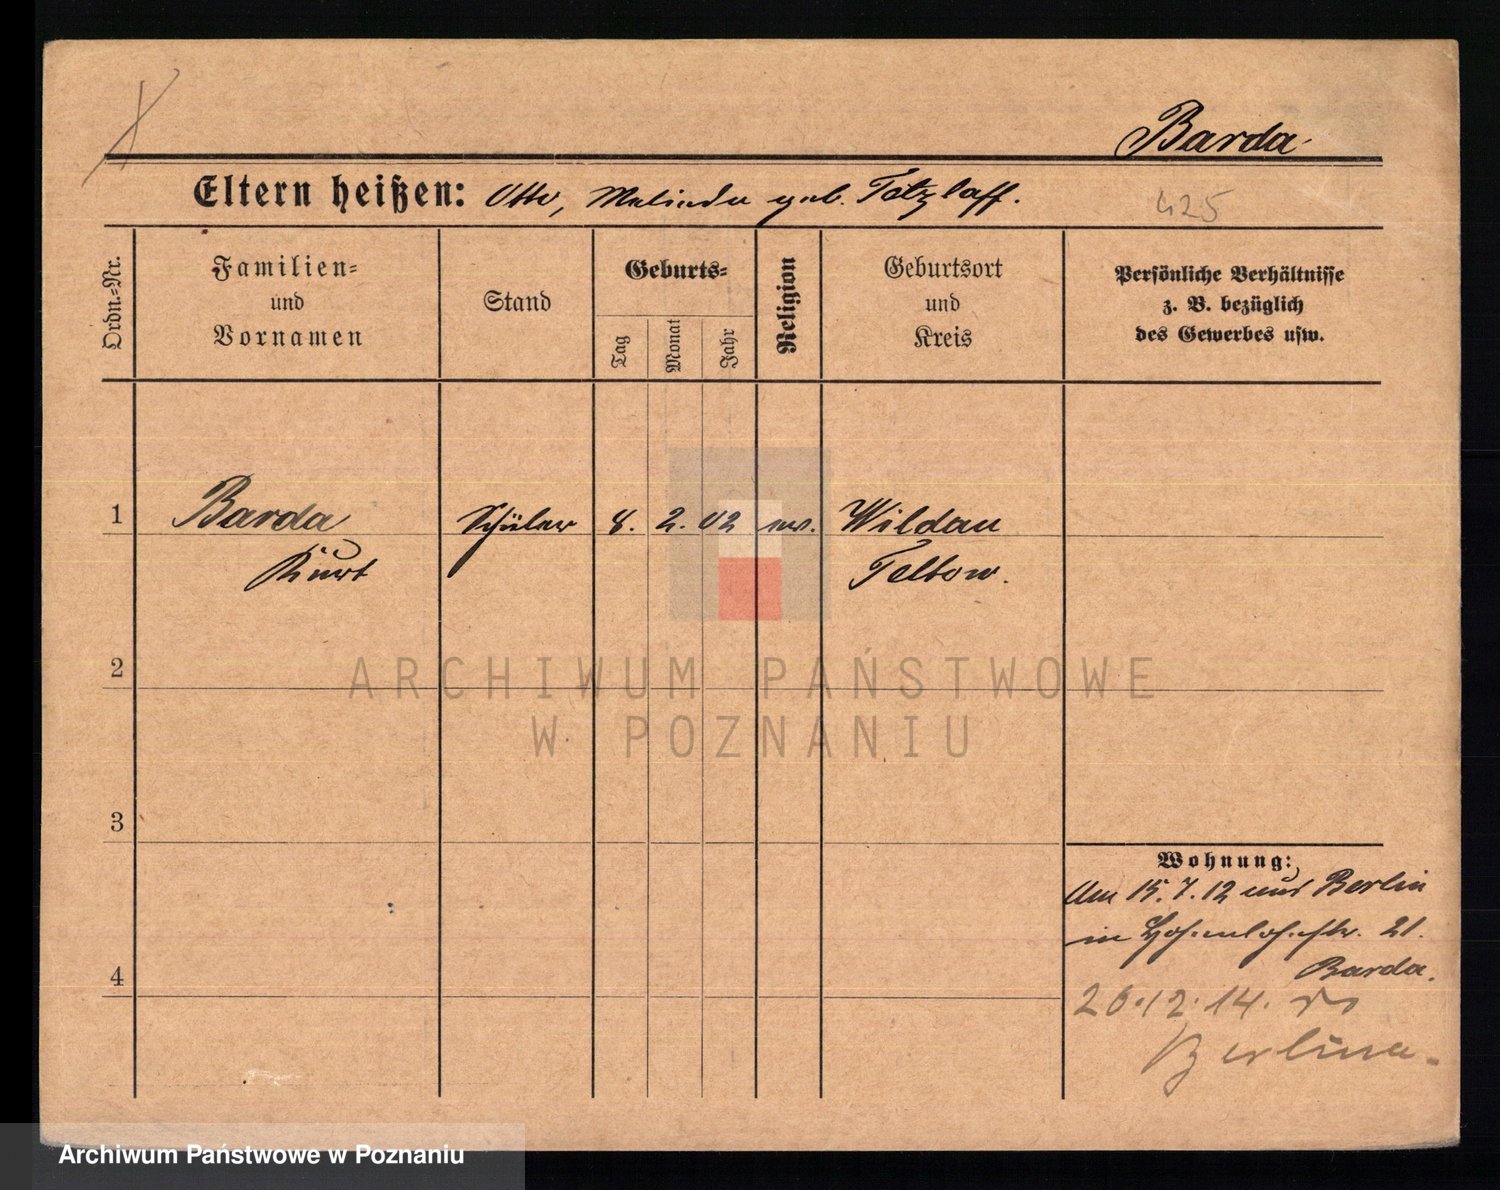 Barda
Eltern heißen: Otto, Melinda geb. Tetzlaff.
425
Ordn.=Nr.
Familien=
und
Vornamen
Stand
Geburts=
Tag
Monat
Jahr
Religion
Geburtsort
und
Kreis
Persönliche Verhältnisse
z. B. bezüglich
des Gewerbes usw.
1
Barda Schüler 8. 2. 02 ev. Wildau
Kurt Teltow.
2
3
4
Wohnung:
Am 15. 7. 12 aus Berlin
in Hohenlohestr. 21.
Barda.
26.12.14.
Berlin
ARCHIWUM PAŃSTWOWE
W POZNANIU
Archiwum Państwowe w Poznaniu